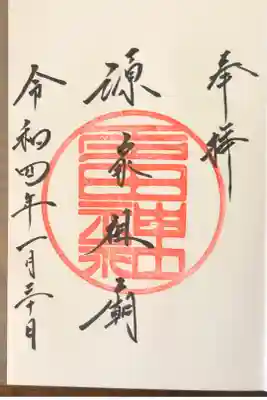 奉拝
源家祖廟
令和四年一月三十日